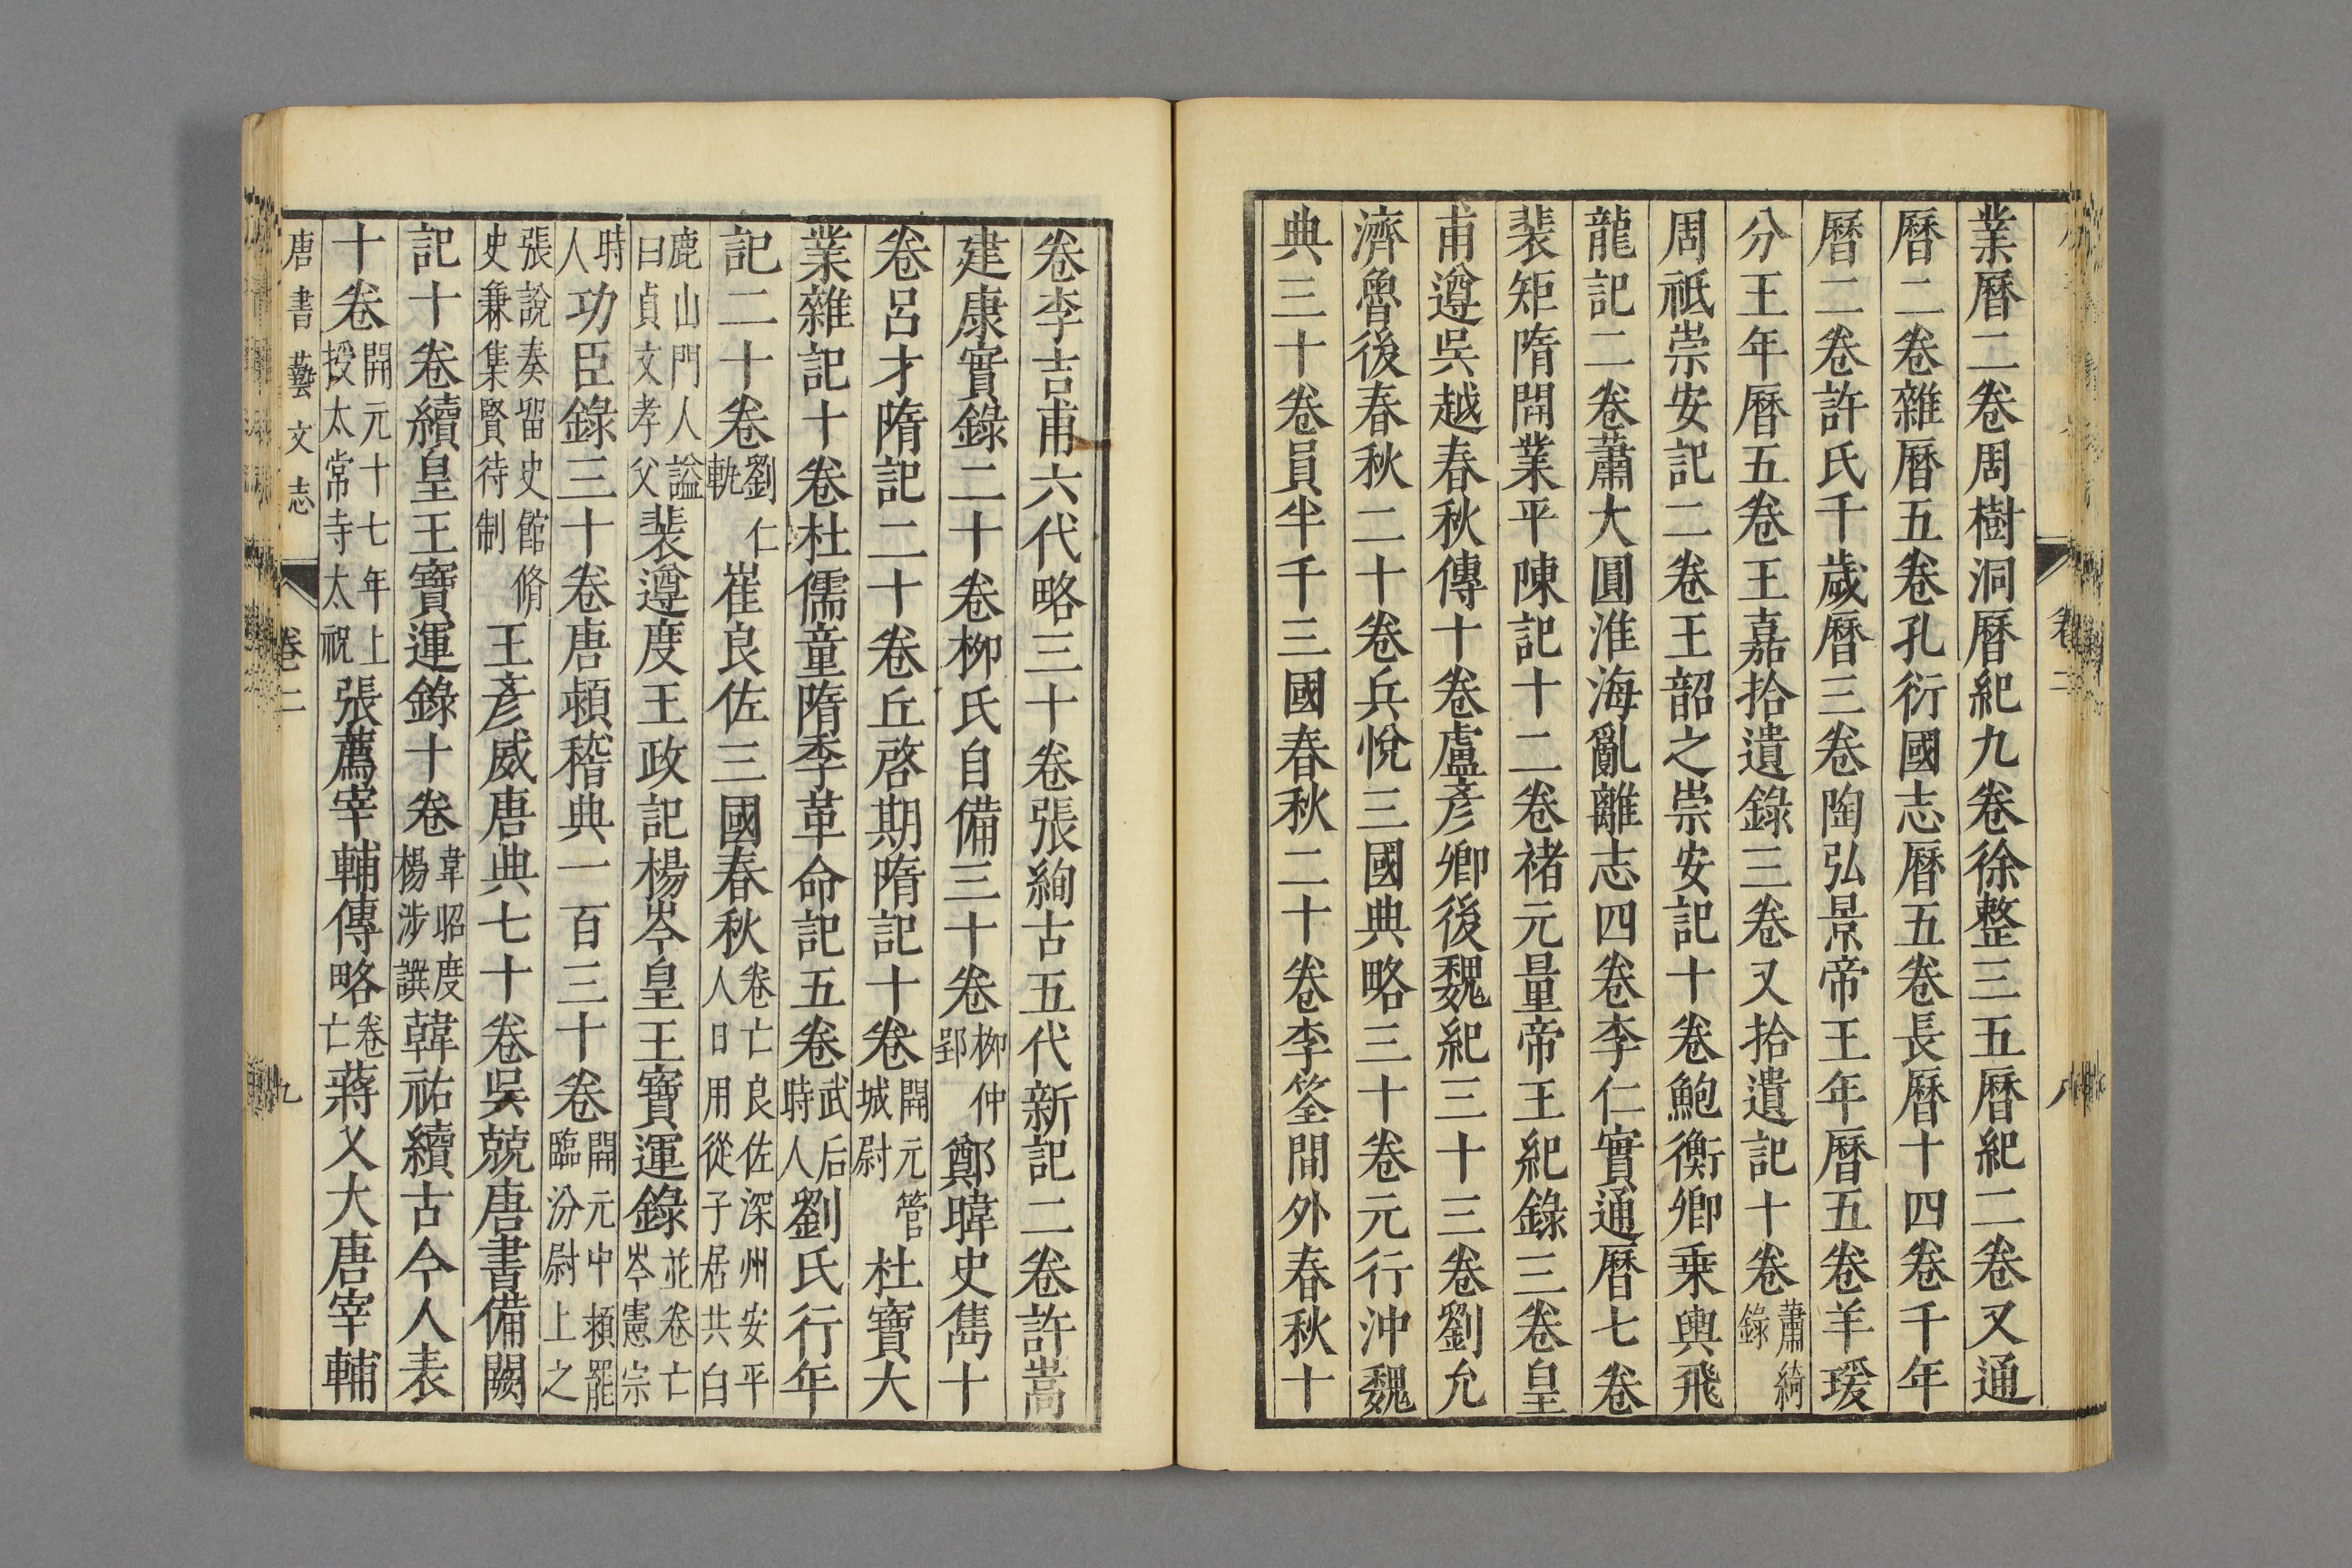 業曆二卷周樹洞曆紀九卷徐整三五曆紀二卷又通
曆二卷雜曆五卷孔衍國志曆五卷長曆十四卷千年
曆二卷許氏千歲曆三卷陶弘景帝王年曆五卷羊瑗
分王年曆五卷王嘉拾遺錄三卷又拾遺記十卷蕭綺
錄
周祗崇安記二卷王韶之崇安記十卷鮑衡卿乗輿飛
龍記二卷蕭大圓淮海亂離志四卷李仁實通曆七卷
裴矩隋開業平陳記十二卷褚元量帝王紀錄三卷皇
甫遵吳越春秋傳十卷盧彥卿後魏紀三十三卷劉允
濟魯後春秋二十卷丘悅三國典略三十卷元行沖魏
典三十卷員半千三國春秋二十卷李筌閫外春秋十
卷李吉甫六代略三十卷張絢古五代新記二卷許嵩
建康實錄二十卷栁氏自備三十卷栁仲
郢
鄭暐史雋十
卷呂才隋記二十卷丘啓期隋記十卷開元管
城尉
杜寶大
業雜記十卷杜儒童隋季革命記五卷武后
時人
劉氏行年
記二十卷劉仁
軌
崔良佐三國春秋卷亡良佐深州安平
人日用從子居共白
鹿山門人謚
曰貞文孝父
裴遵度王政記楊岑皇王寶運錄並卷亡
岑憲宗
時
人
功臣錄三十卷唐頴稽典一百三十卷開元中頴罷
臨汾尉上之
張說奏留史館脩
史兼集賢待制
王彥威唐典七十卷吳兢唐書備闕
記十卷續皇王寶運錄十卷韋昭度
楊涉譔
韓祐續古今人表
十卷開元十七年上
授太常寺太祝
張薦宰輔傳略卷
亡
蔣乂大唐宰輔
唐書藝文志
卷二
九